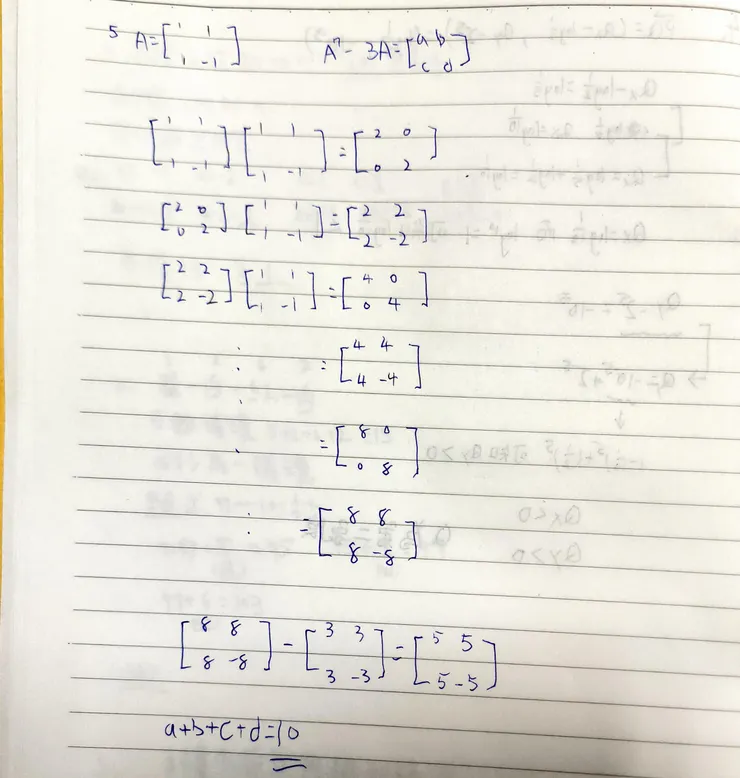 5 A=[1 1; 1 -1] A⁷ - 3A=[a b; c d]
[1 1; 1 -1] [1 1; 1 -1] = [2 0; 0 2]
[2 0; 0 2] [1 1; 1 -1] = [2 2; 2 -2]
[2 2; 2 -2] [1 1; 1 -1] = [4 0; 0 4]
⋮ = [4 4; 4 -4]
= [8 0; 0 8]
⋮ = [8 8; 8 -8]
[8 8; 8 -8] - [3 3; 3 -3] = [5 5; 5 -5]
a+b+c+d=10